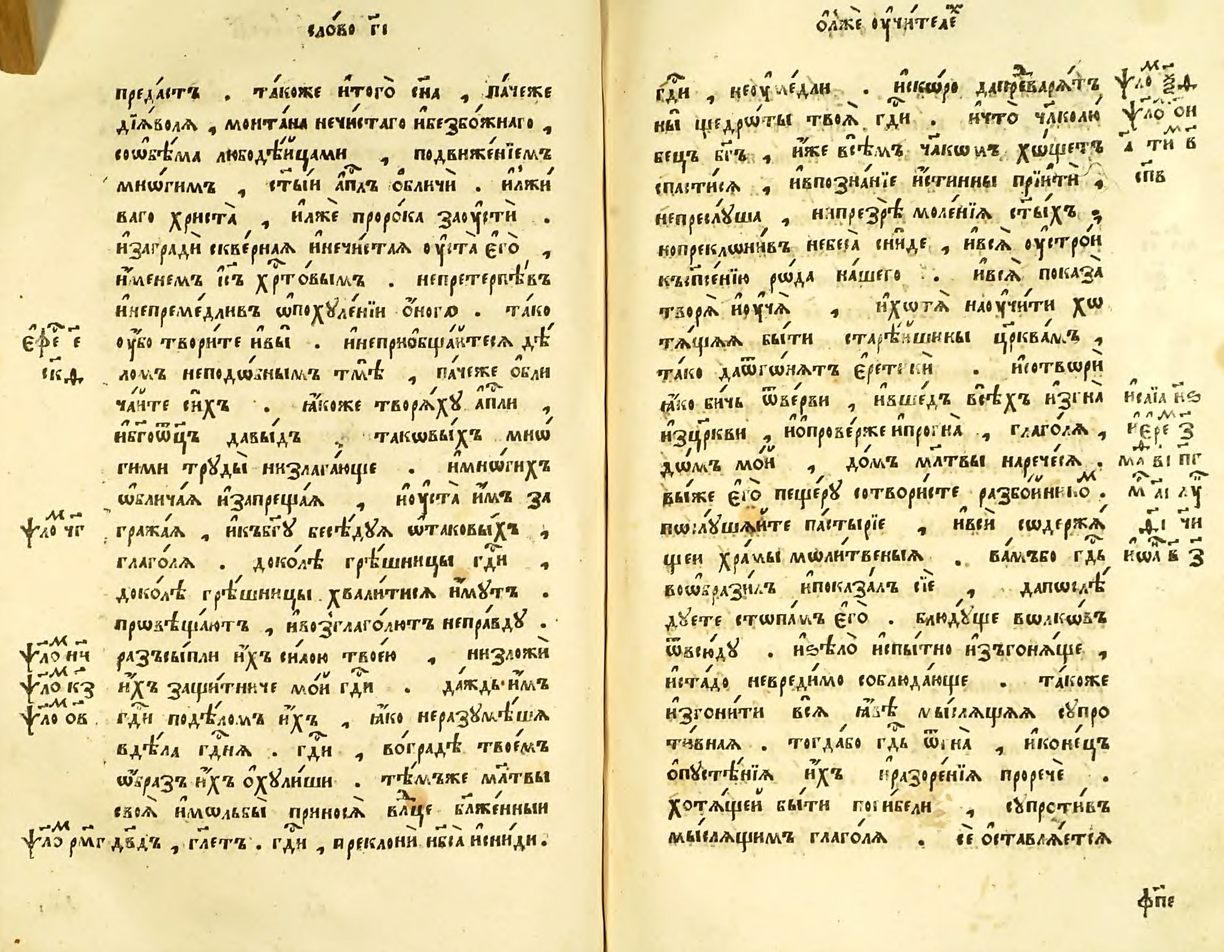 сло́во г҃і
преда́стъ . та́коже и҆того̀ сн҃а , па́чеже
дїѧ́вола , монта́на нечи́стаго и҆безбо́жнаго ,
соѡ҆бѣ́ма любодѣ́йцами , подвиже́нїемъ
мно́гимъ , ст҃ы́и а҆пⷭ҇лъ ѡ҆бличѝ . и҆лжи
ваго христа̀ , и҆лжѐ проро́ка заᲂу҆стѝ .
и҆заградѝ скве́рнаѧ и҆нечи́стаѧ ᲂу҆ста̀ є҆гѡ̀ ,
и҆́менемъ і҆с҃ъ хрⷭ҇то́вымъ . непретерпѣ́въ
и҆непреме́дливъ ѡ҆похуле́нїи ѻ҆́ного . та́ко
ᲂу҆́бо твори́те и҆вы̀ . и҆неприѻбща́йтесѧ дѣ́
ломъ неподо́бнымъ тмѣ̀ , па́чеже ѻ҆бли
ча́йте си́хъ . ꙗ҆́коже творѧ́ху а҆пⷭ҇ли ,
и҆бг҃оѿц҃ъ давы́дъ . таковы́хъ мнѡ́
гими труды̀ низлага́юще . и҆мно́гихъ
ѡ҆блича́ѧ и҆запреща́ѧ , и҆ᲂу҆ста̀ и҆̀мъ за
гражда́ѧ , и҆къбг҃у бесѣ́дуѧ ѡ҆таковы́хъ ,
глаго́лѧ . доко́лѣ грѣ́шницы гдⷭ҇и ,
доко́лѣ грѣ́шницы хвали́тисѧ и҆́мутъ .
провѣща́ютъ , и҆возглаго́лютъ непра́вду .
разъсы́пли и҆̀хъ си́лою твое́ю , низложѝ
и҆̀хъ защи́тниче мо́й гдⷭ҇и . да́ждьи҆̀мъ
гдⷭ҇и подѣло́мъ и҆̀хъ , ꙗ҆́ко неразумѣ́шѧ
вдѣ́ла гдⷭ҇нѧ . гдⷭ҇и , во́градѣ твое́мъ
ѡ҆́бразъ и҆̀хъ ѻ҆хули́ши . тѣ́мъже мл҃твы
своѧ̀ и҆мольбы̀ приносѧ̀ влⷣце бл҃же́нныи
дв҃дъ , гл҃етъ . гдⷭ҇и , преклонѝ нб҃са̀ и҆сни́ди .
є҆фе є҃
ск҃д
ѱало чг
ѱало нч
ѱало кз
ѱало ов
ѱало рмг
ѻ҆лжѐ ᲂу҆чи́телеⷯ
гдⷭ҇и , неᲂу҆ме́дли . и҆ско́ро дапредварѧ́тъ
ны̀ щедро́ты твоѧ̀ гдⷭ҇и . и҆что̀ чл҃колю́
бецъ бг҃ъ , и҆́же всѣ́мъ чл҃комъ хо́щетъ
спасти́сѧ , и҆впозна́нїе и҆́стинны прїитѝ ,
непреслу́ша , нипрезрѣ̀ моле́нїѧ ст҃ы́хъ ,
нопреклони́въ небеса̀ сни́де , и҆всѧ̀ ᲂу҆стро́и
къспⷭ҇е́нїю ро́да на́шего . и҆всѧ̀ показа̀
творѧ̀ и҆ᲂу҆чѧ̀ , и҆хотѧ̀ наᲂу҆чи́ти хо
тѧ́щаѧ бы́ти старѣ́йшины цр҃квамъ ,
та́ко даѿгонѧ́тъ є҆ретикѝ . и҆сотворѝ
ꙗ҆́ко бичь ѿве́рви , и҆вше́дъ всѣ́хъ и҆згна̀
и҆зцр҃кви , и҆ѻ҆прове́рже и҆прогна̀ , глаго́лѧ ,
до́мъ мо́й , до́мъ мл҃твы нарече́сѧ .
вы́же є҆гѡ̀ пеще́ру сотвори́сте разбо́йникоⷨ .
послу́шайте па́стырїе , и҆всѝ содержѧ́
щеи хра́мы моли́твеныѧ . ва́мъбо гдⷭ҇ь
воѻбрази́лъ и҆показа́лъ сїѐ , дапослѣ́
дуете стопа́мъ є҆гѡ̀ . блюду́ще волко́въ
ѿвсю́ду . и҆ѕѣло̀ и҆спы́тно и҆зъгонѧ́ще ,
и҆ста́до невреди́мо соблюда́юще . та́коже
и҆згони́ти всѧ̀ ꙗ҆́вѣ мы́слѧщаѧ супро
ти́внаѧ . тогда́бо гдⷭ҇ь ѿгна̀ , и҆коне́цъ
ѻ҆пустѣ́нїѧ и҆̀хъ и҆разоре́нїѧ прорече̏ .
хотѧ́щей бы́ти поги́бели , супроти́въ
мы́слѧщимъ глаго́лѧ . сѐ ѻ҆ставлѧ́етсѧ
ѱало
ѱало ои
а҃ ти в҃
спв
и҆са́їа нѕ
и҆єре з
ма ві пг
д҃і чи
і҆ѡа в҃ з
фпе